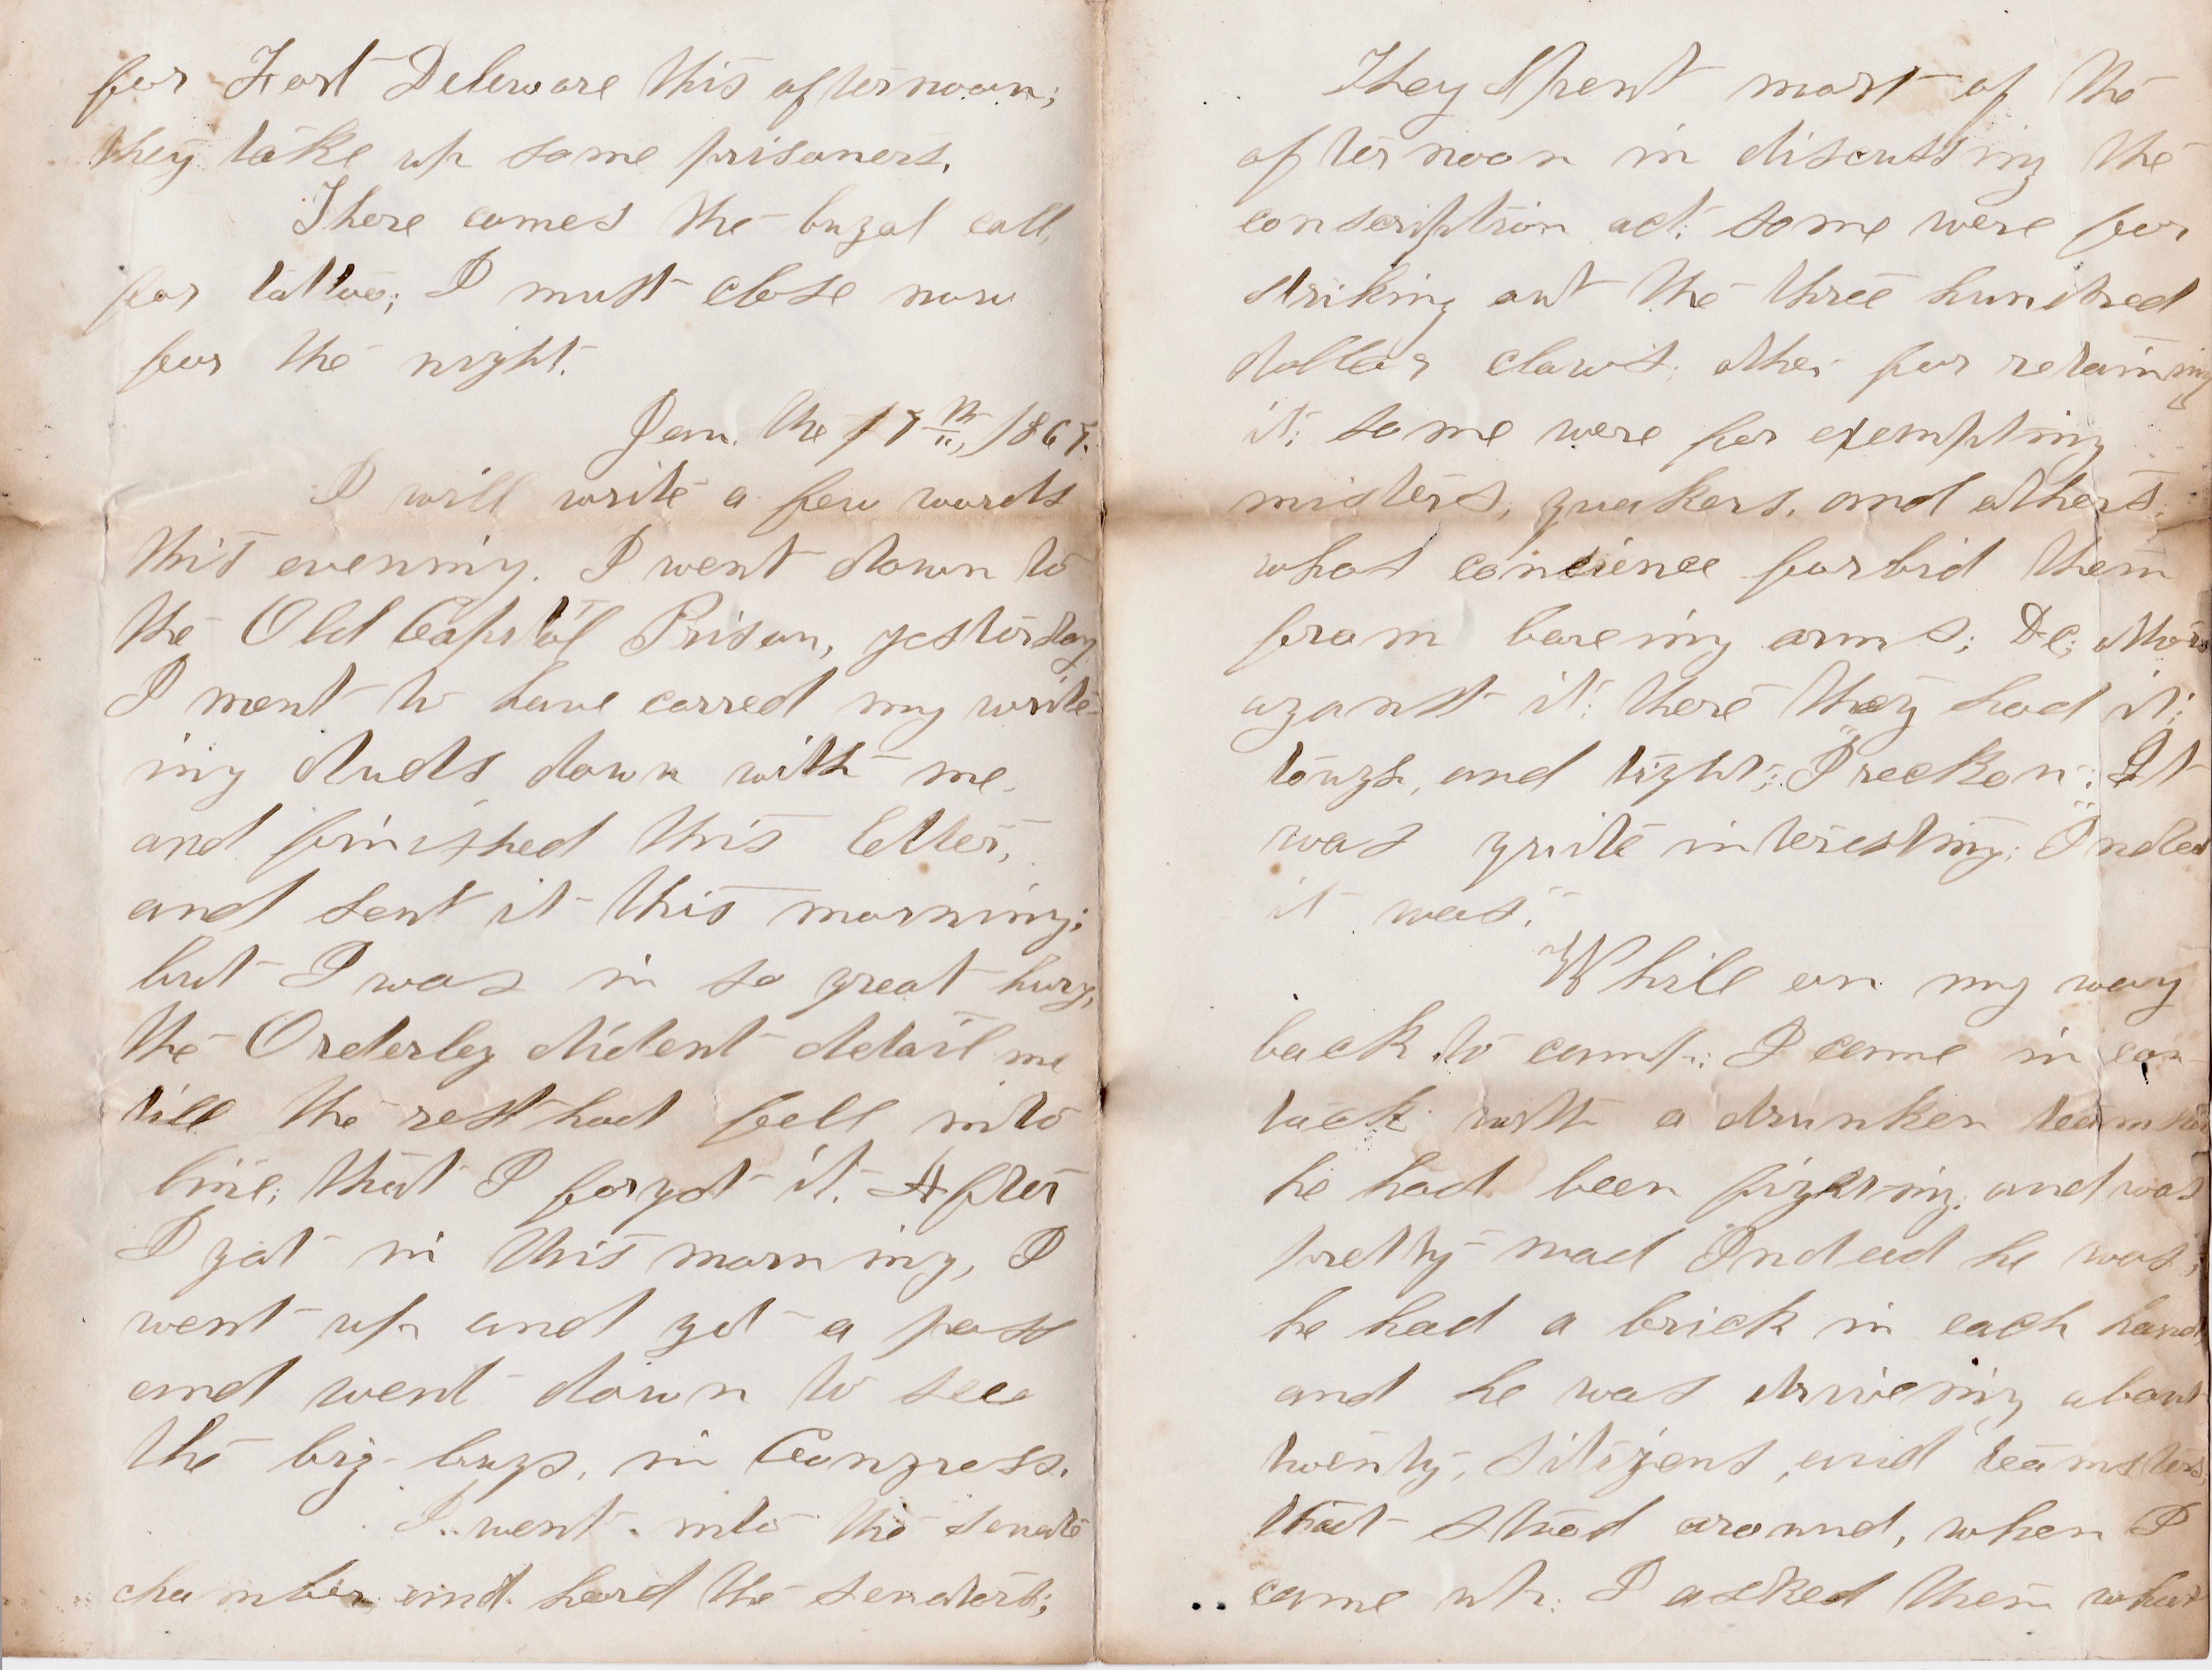 for Fort Deleware this afternoon;
they take up some prisoners.
There comes the bugal call
for tattoo; I must close now
for the night.
Jan. the 17th, 186
I will write a few words
this evening. I went down to
the Old Capital Prison, yesterday
I ment to have carred my write-
ing duds down with me,
and finished this letter,
and sent it this morning;
but I was in so great hury,
the Orderley dident detail me
till the rest had fell into
line; that I forgot it. After
I got in this morning, I
went up and got a pass
and went down to see
the big-bugs, in Congress.
I went into the senate
chamber and heard the senators;
They spent most of the
afternoon in discussing the
conscription act; some were for
striking out the three hundred
dollar claws; other for retaining
it; some were for exempting
misters, quakers, and others,
whos concience forbid them
from bareing arms; &c; others
aganst it; there they had it;
tough, and tight; "I reckon"; It
was quite interesting; "Indeed
it was."
While on my way
back to camp; I came in con-
tack with a drunken teamster
he had been fighting, and was
pretty mad Indeed he was;
he had a brick in each hand,
and he was driveing about
twenty, sitizens, and teamsters,
that stood around, when I
came up; I asked them what